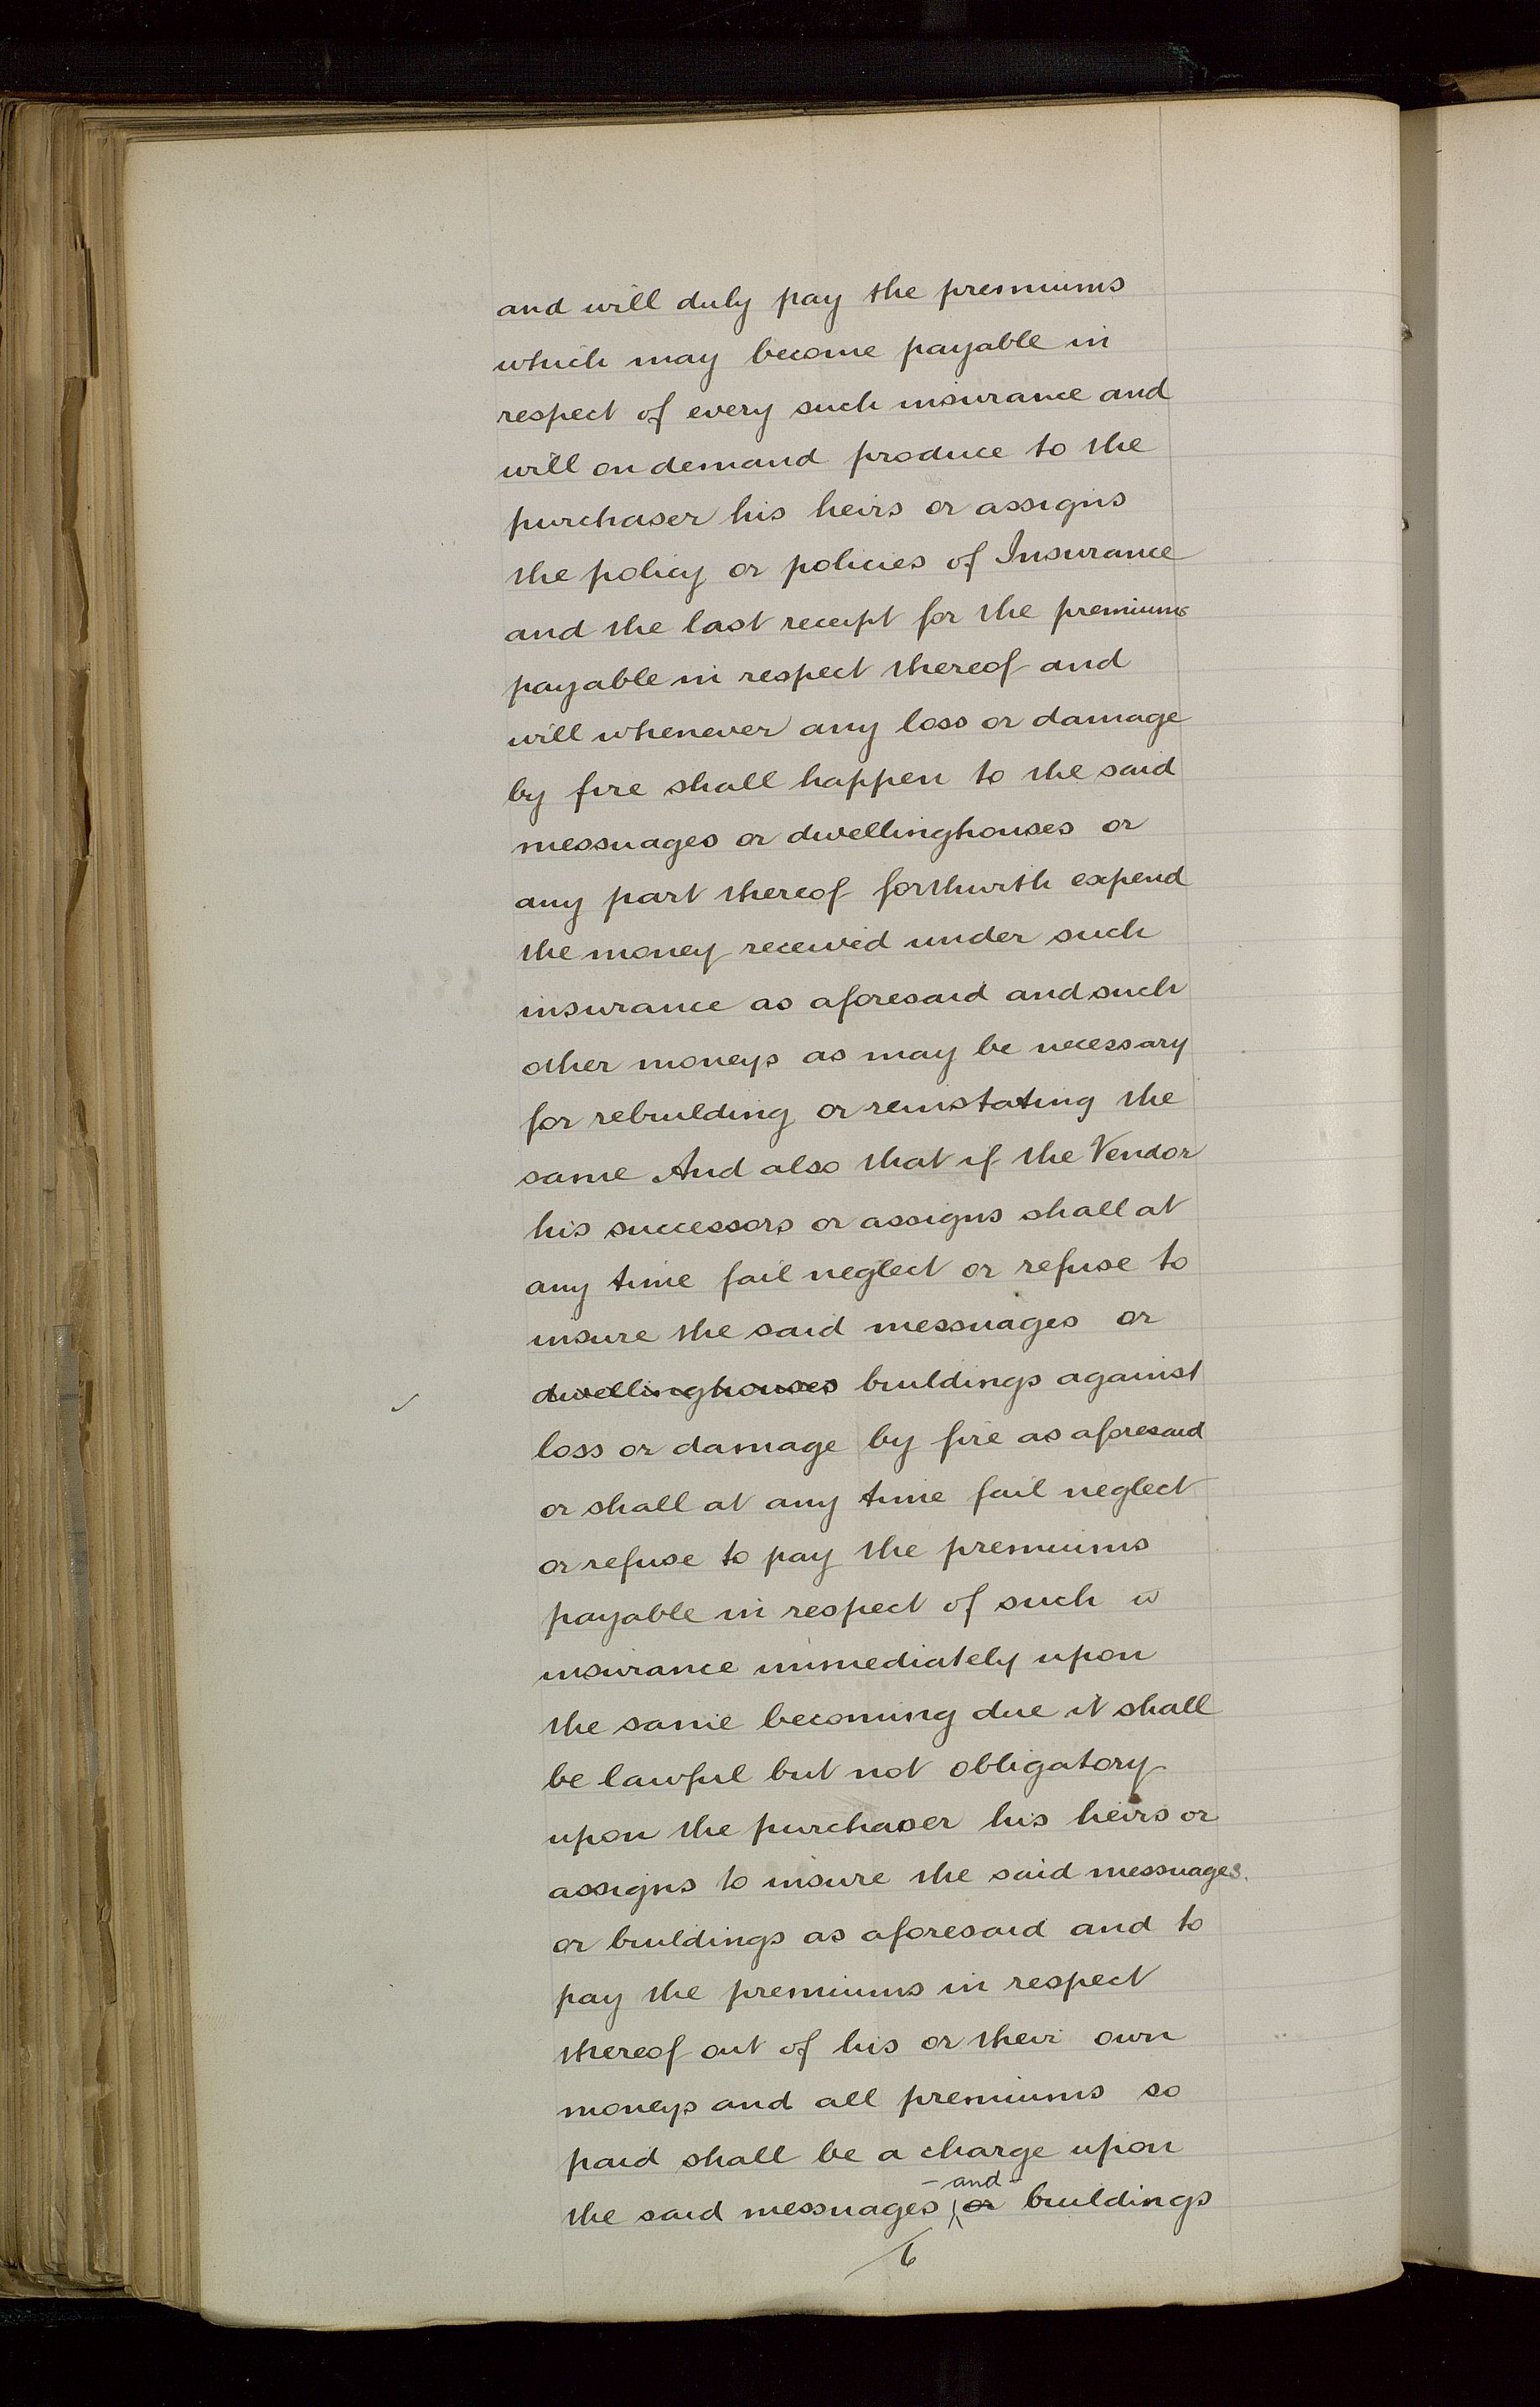 and will duly pay the premiums
which may become payable in
respect of every such insurance and
will on demand produce to the
purchaser his heirs or assigns
the policy or policies of Insurance
and the last receipt for the premiums
payable in respect thereof and
will whenever any loss or damage
by fire shall happen to the said
messuages or dwellinghouses or
any part thereof forthwith expend
the money received under such
insurance as aforesaid and such
other moneys as may be necessary
for rebuilding or reinstating the
same And also that if the Vendor
his successors or assigns shall at
any time fail neglect or refuse to
insure the said messuages or
dwellinghouses buildings against
loss or damage by fire as aforesaid
or shall at any time fail neglect
or refuse to pay the premiums
payable in respect of such
insurance immediately upon
the same becoming due it shall
be lawful but not obligatory
upon the purchaser his heirs or
assigns to insure the said messuages.
or buildings as aforesaid and to
pay the premiums in respect
thereof out of his or their own
moneys and all premiums so
paid shall be a charge upon
- and -
the said messuages or buildings
6